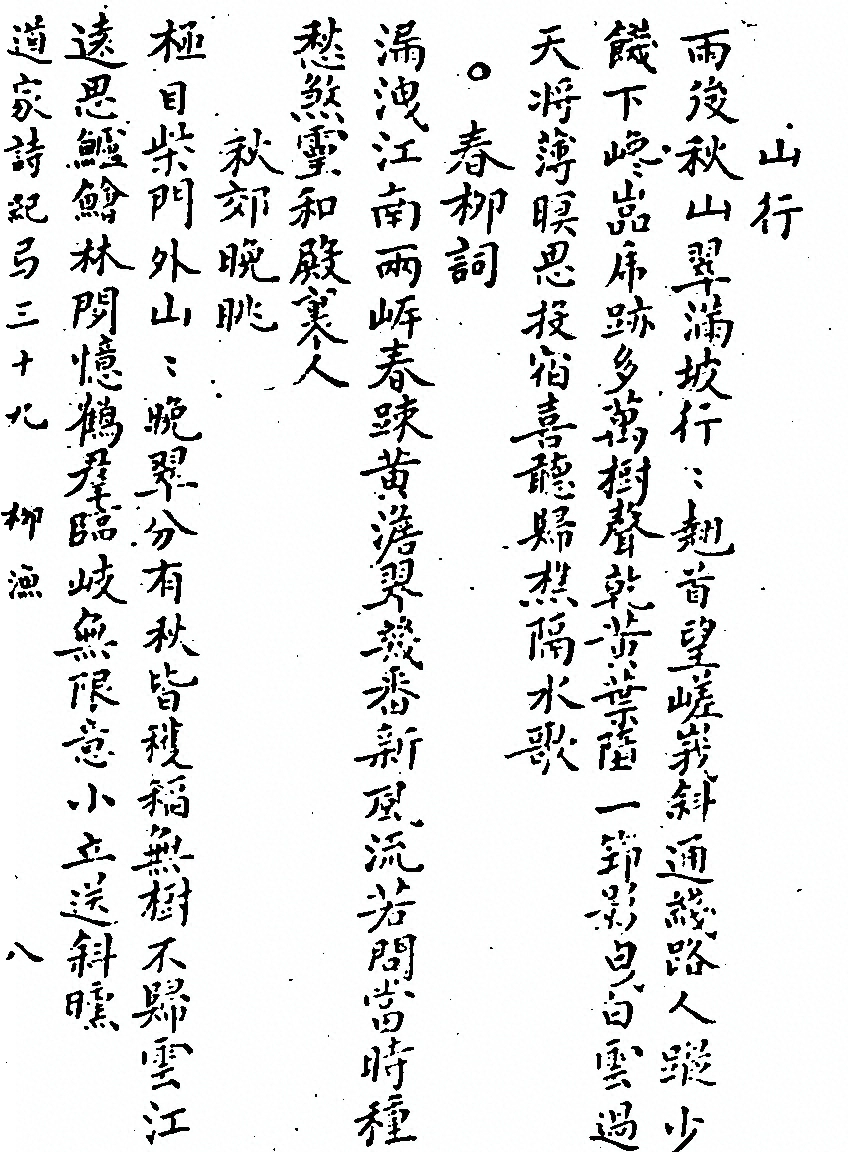 山行
雨後秋山翠滿坡行〻翹首望嵯峩斜通綫路人蹤少
饑下嵾嵓虎跡多萬樹聲乾黃葉墮一筇影曳白雲過
天將薄暝思投宿喜聽歸樵隔水歌
○春柳詞
漏洩江南兩岍春踈黃澹翠幾番新風流若問當時種
愁煞靈和殿裏人
秋郊晚眺
極目柴門外山〻晚翠分有秋皆穫稻無樹不歸雲江
遠思鱸鱠林閒憶鶴羣臨歧無限意小立送斜曛
道家詩紀弓三十九 柳漁 八